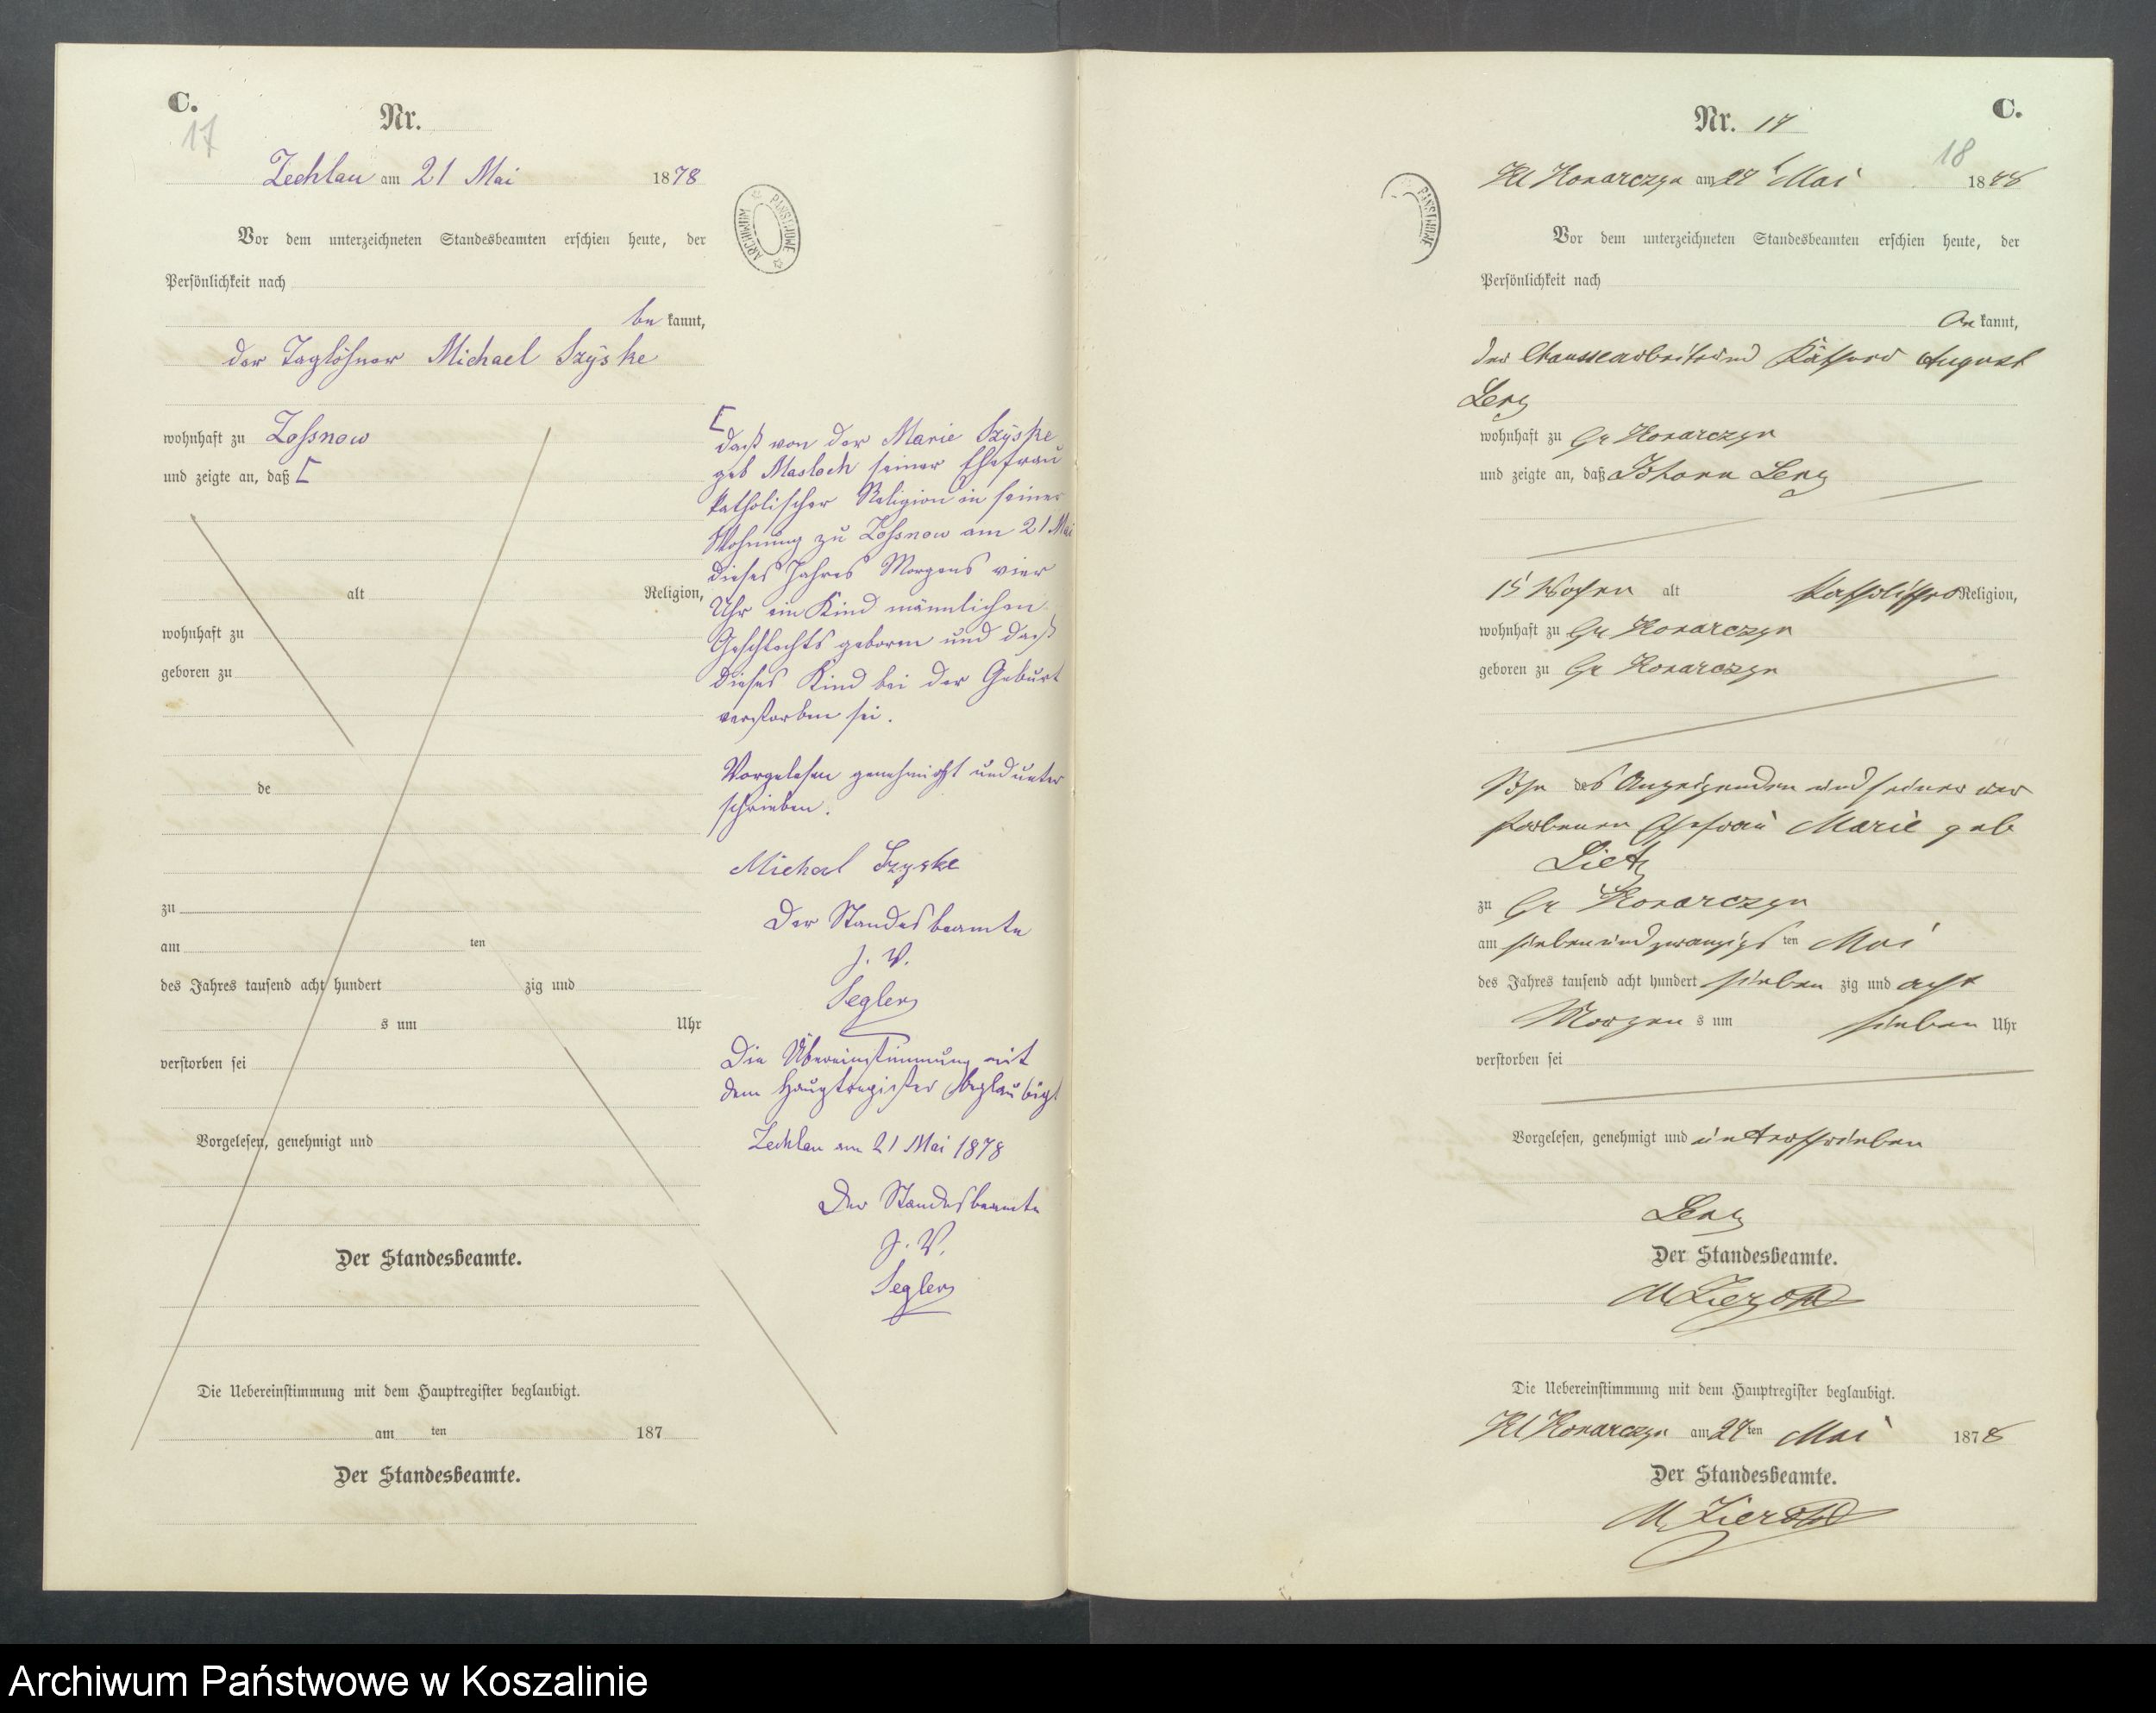 C.
17
Nr.
Zechlau am 21 Mai 1878
Vor dem unterzeichneten Standesbeamten erschien heute, der
Persönlichkeit nach
be kannt,
der Taglöhner Michael Szÿske
wohnhaft zu Zossnow
und zeigte an, daß [
alt Religion,
wohnhaft zu
geboren zu
de
zu
am ten
des Jahres tausend acht hundert zig und
s um Uhr
verstorben sei
Vorgelesen, genehmigt und
Der Standesbeamte.
Die Uebereinstimmung mit dem Hauptregister beglaubigt.
am ten 187
Der Standesbeamte.
ARCHIWUM PAŃSTWOWE
[
daß von der Marie Szÿske
geb Masloch seiner Ehefrau
katholischer Religion in seiner
Wohnung zu Zossnow am 21 Mai
dieses Jahres Morgens vier
Uhr ein Kind männlichen
Geschlechts geboren und daß
dieses Kind bei der Geburt
verstorben sei.
Vorgelesen genehmigt und unter
schrieben.
Michael Szyske
Der Standesbeamte
J. V.
Segler
Die Übereinstimmung mit
dem Hauptregister beglaubigt
Zechlau am 21 Mai 1878
Der Standesbeamte
J. V.
Segler
C.
Nr. 17
18
Kl Konarczyn am 27 Mai 1878
PAŃSTWOWE
Vor dem unterzeichneten Standesbeamten erschien heute, der
Persönlichkeit nach
be kannt,
der Chausseearbeiter und Käthner August
Lenz
wohnhaft zu Gr Konarczyn
und zeigte an, daß Johann Lenz
15 Wochen alt katholischer Religion,
wohnhaft zu Gr Konarczyn
geboren zu Gr Konarczyn
Sohn des Anzeigenden und seiner ver
storbenen Ehefrau Marie geb
Lietz
zu Gr Konarczyn
am siebenundzwanzigs ten Mai
des Jahres tausend acht hundert sieben zig und acht
Morgen s um sieben Uhr
verstorben sei
Vorgelesen, genehmigt und unterschrieben
Lenz
Der Standesbeamte.
Die Uebereinstimmung mit dem Hauptregister beglaubigt.
Kl Konarczyn am 27 ten Mai 1878
Der Standesbeamte.
Archiwum Państwowe w Koszalinie